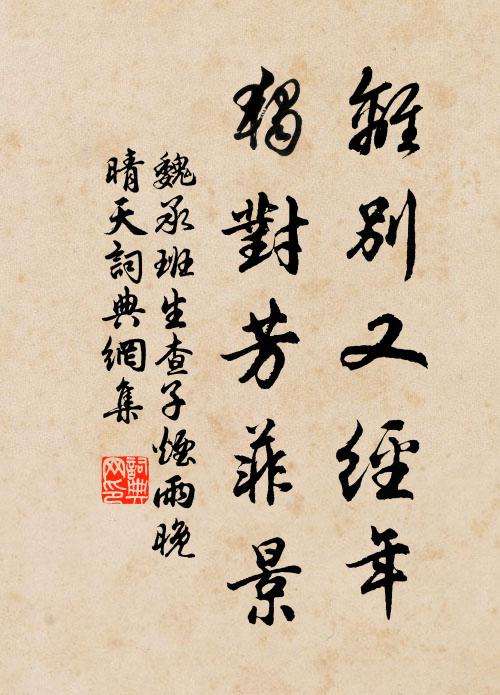 離別又經年
獨對芳菲景
魏承班生查子煙雨晚
晴天詞典網集
詞典网印